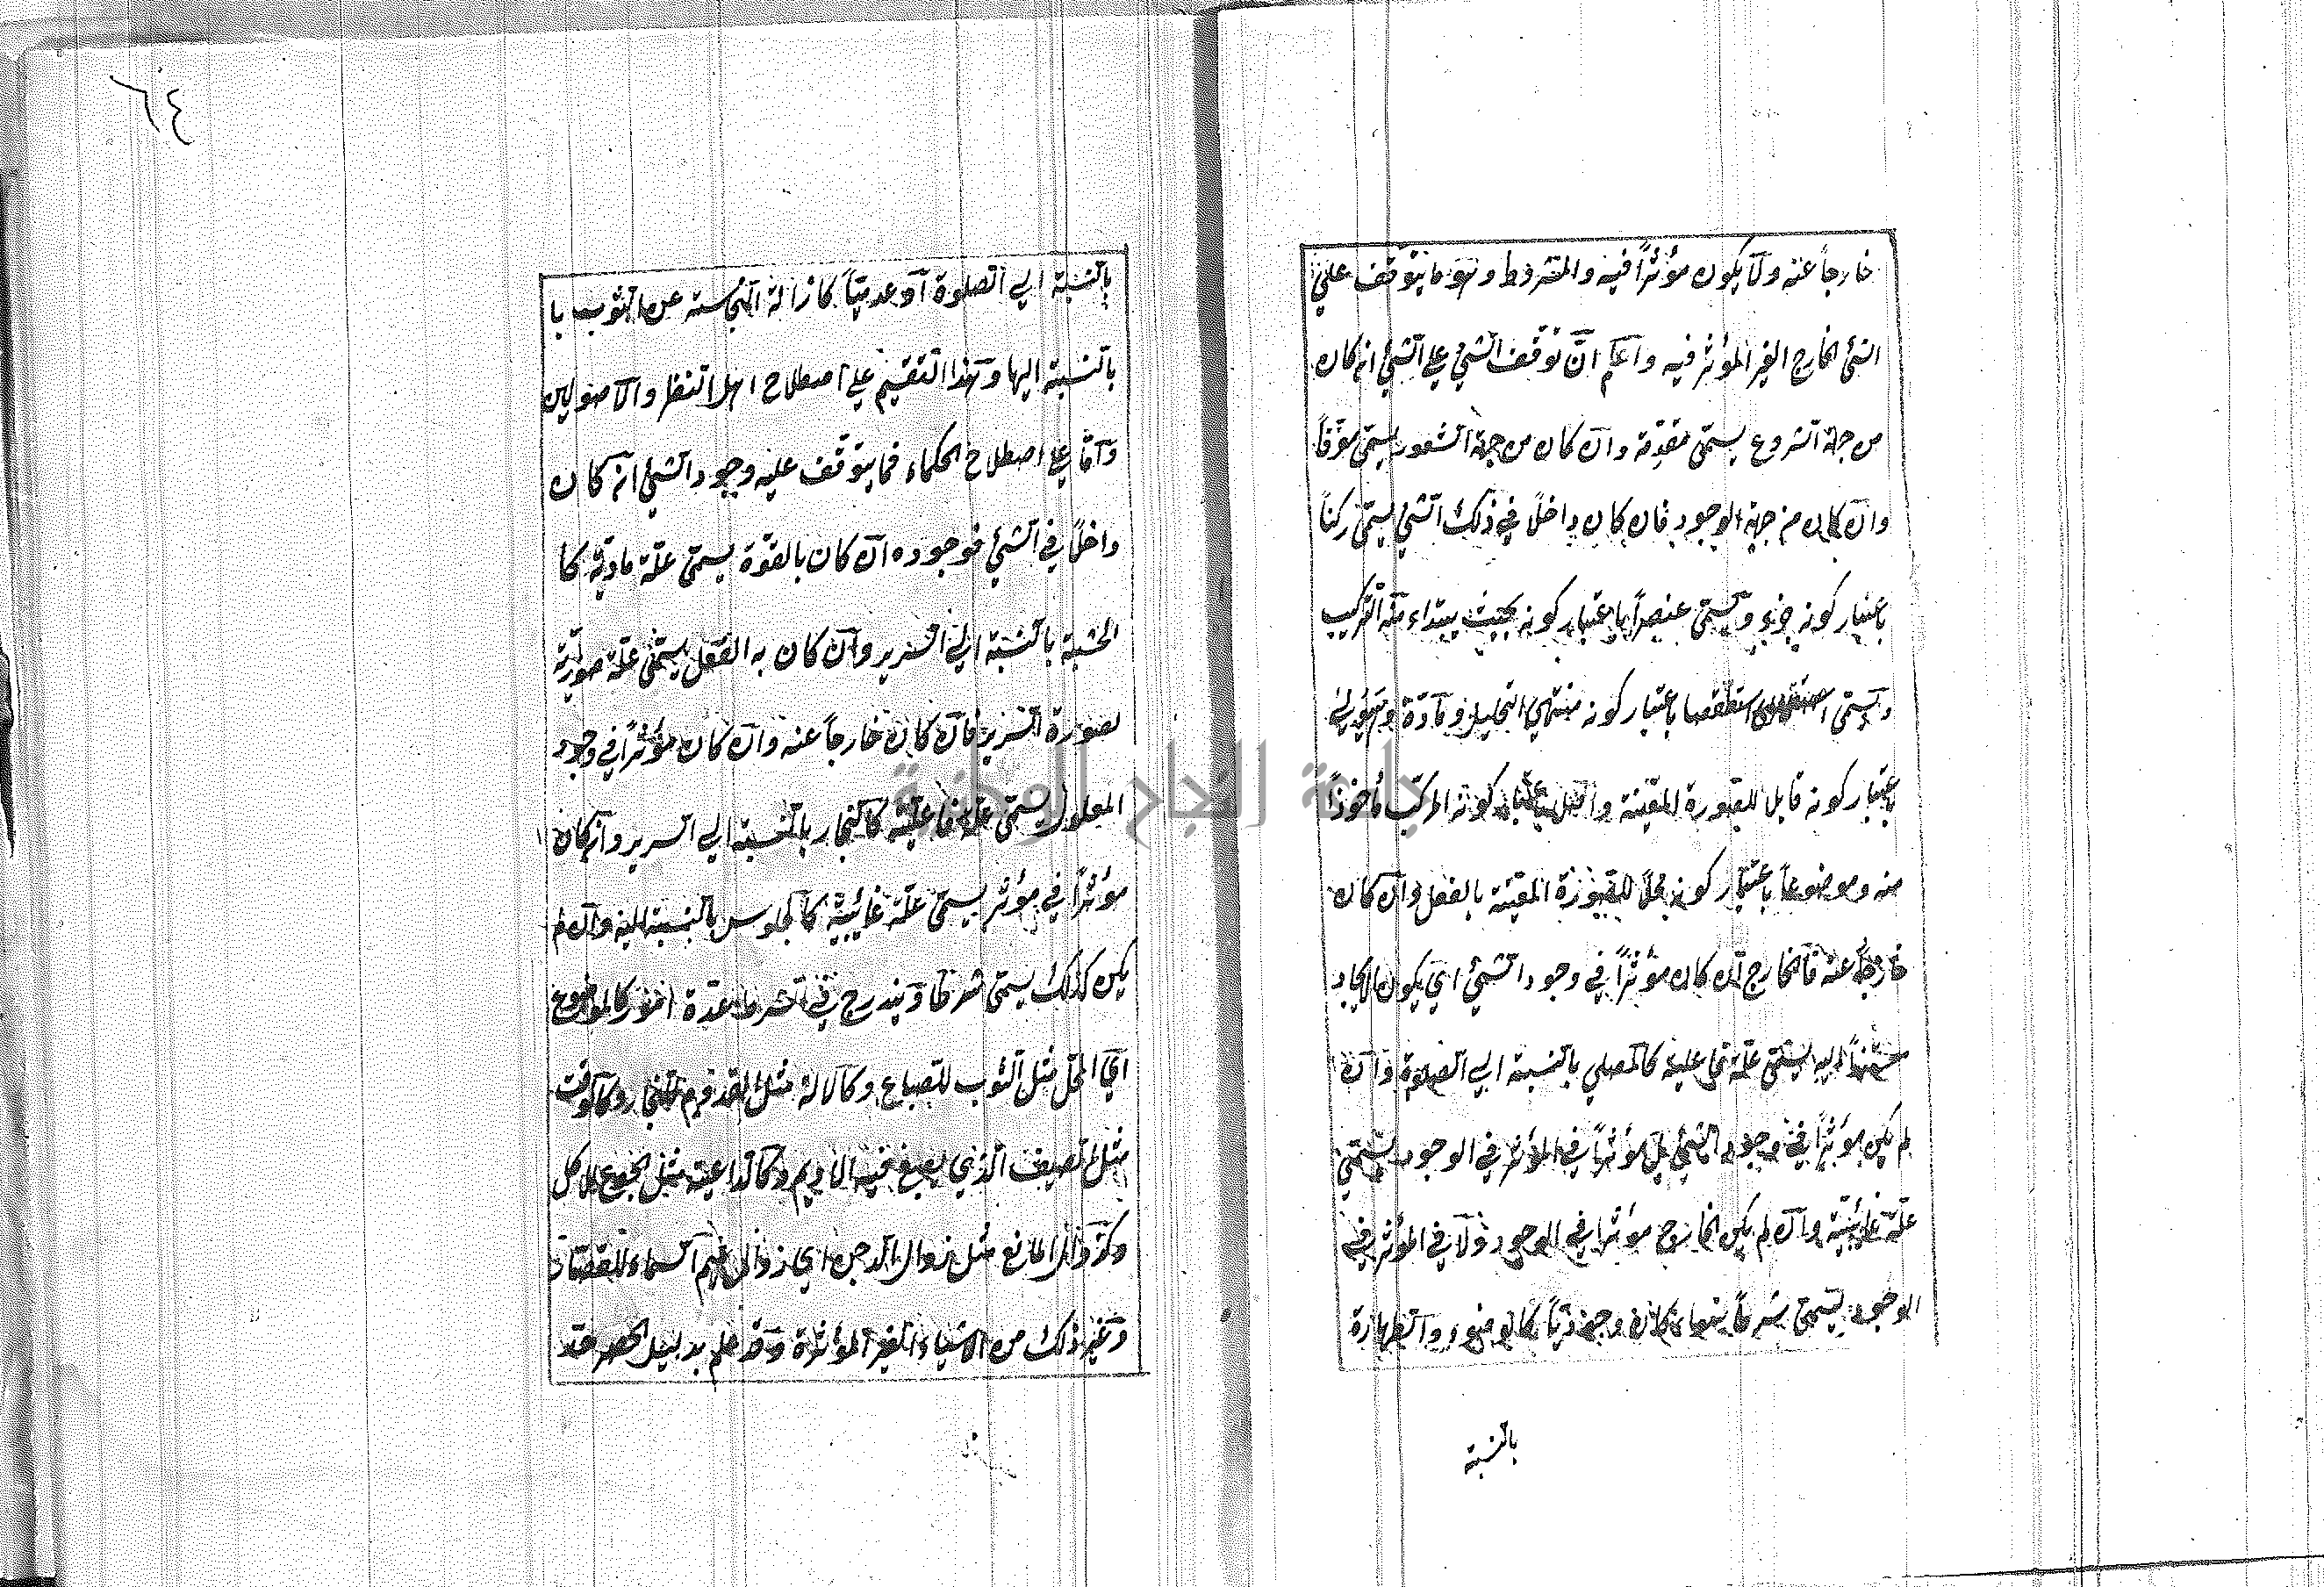 خارجاً عنه ولا يكون مؤثراً فيه والمشروط وهو ما يتوقف على
الشئ الخارج الغير المؤثر فيه واعلم انّ توقف الشئ على الشئ ان كان
من جهة الشروع يسمى مقدّمة وان كان من جهة الشعور يسمى معرّفاً
وان كان من جهة الوجود فان كان داخلاً في ذلك الشئ يسمى ركناً
باعتبار كونه جزء ويسمى عنصراً باعتبار كونه بحيث يبتداء منه التركيب
ويسمى استطقصا باعتبار كونه منتهى التحليل ومادّة وهيولى
باعتبار كونه قابل للصورة المعيّنة واصل باعتبار كونه المركب مأخوذاً
منه وموضوعاً باعتبار كونه محلاً للصورة المعيّنة بالفعل وان كان
خارجاً عنه فالخارج ان كان مؤثراً في وجود الشئ اي يكون الايجاد
مستنداً اليه يسمى علّة فاعلية كالمصلي بالنسبة الي الصلوة وان
لم يكن مؤثراً في وجود الشئ بل مؤثراً في المؤثر في الوجود يسمى
علّة غائيية وان لم يكن الخارج مؤثرا في الوجود ولا في المؤثر في
الوجود يسمى شرطاً سواء كان وجودياً كالوضوء والطهارة
بالنسبة
٦٤
بالنسبة الي الصلوة او عدميّاً كازالة النجاسة عن الثوب با
بالنسبة اليها وهذا التقسيم على اصطلاح اهل النظر والاصولين
وامّا على اصطلاح الحكماء فما يتوقف عليه وجود الشئ ان كان
داخلاً في الشئ فوجوده ان كان بالقوّة يسمى علّة مادّية كا
الخشبة بالنسبة الي السرير وان كان به الفعل يسمى علّة صوريّة
لصورة السرير فان كان خارجاً عنه وان كان مؤثراً في وجود
المعلول يسمى علّة فاعليّة كالنجار بالنسبة الي السرير وان كان
مؤثراً في مؤثر يسمى علّة غائيية كالجلوس بالنسبة اليه وان لم
يكن كذلك يسمى شرطا ويندرج في الشرط عدّة امور كالموضوع
اي المحلّ مثل الثوب للصباغ وكالالة مثل القدوم للنجار وكالوقت
مثل الصيف الذي يصبغ فيه الاديم وكالداعية مثل الجوع للاكل
وكزوال المانع مثل زوال الدجن اي زوال غيم السماء للقصّار
وغير ذلك من الاشياء الغير المؤثرة وقد علم بدليل الحصر قد